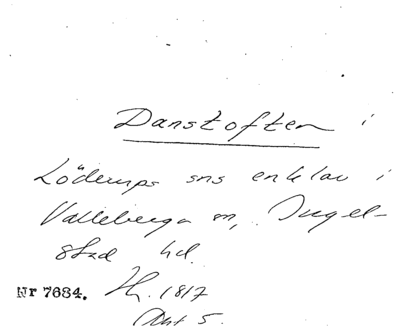 Danstoften i
Löderups sns enklav i
Valleberga sn, Ingel-
stad hd.
Nr 7684. H. 1817
Akt 5.